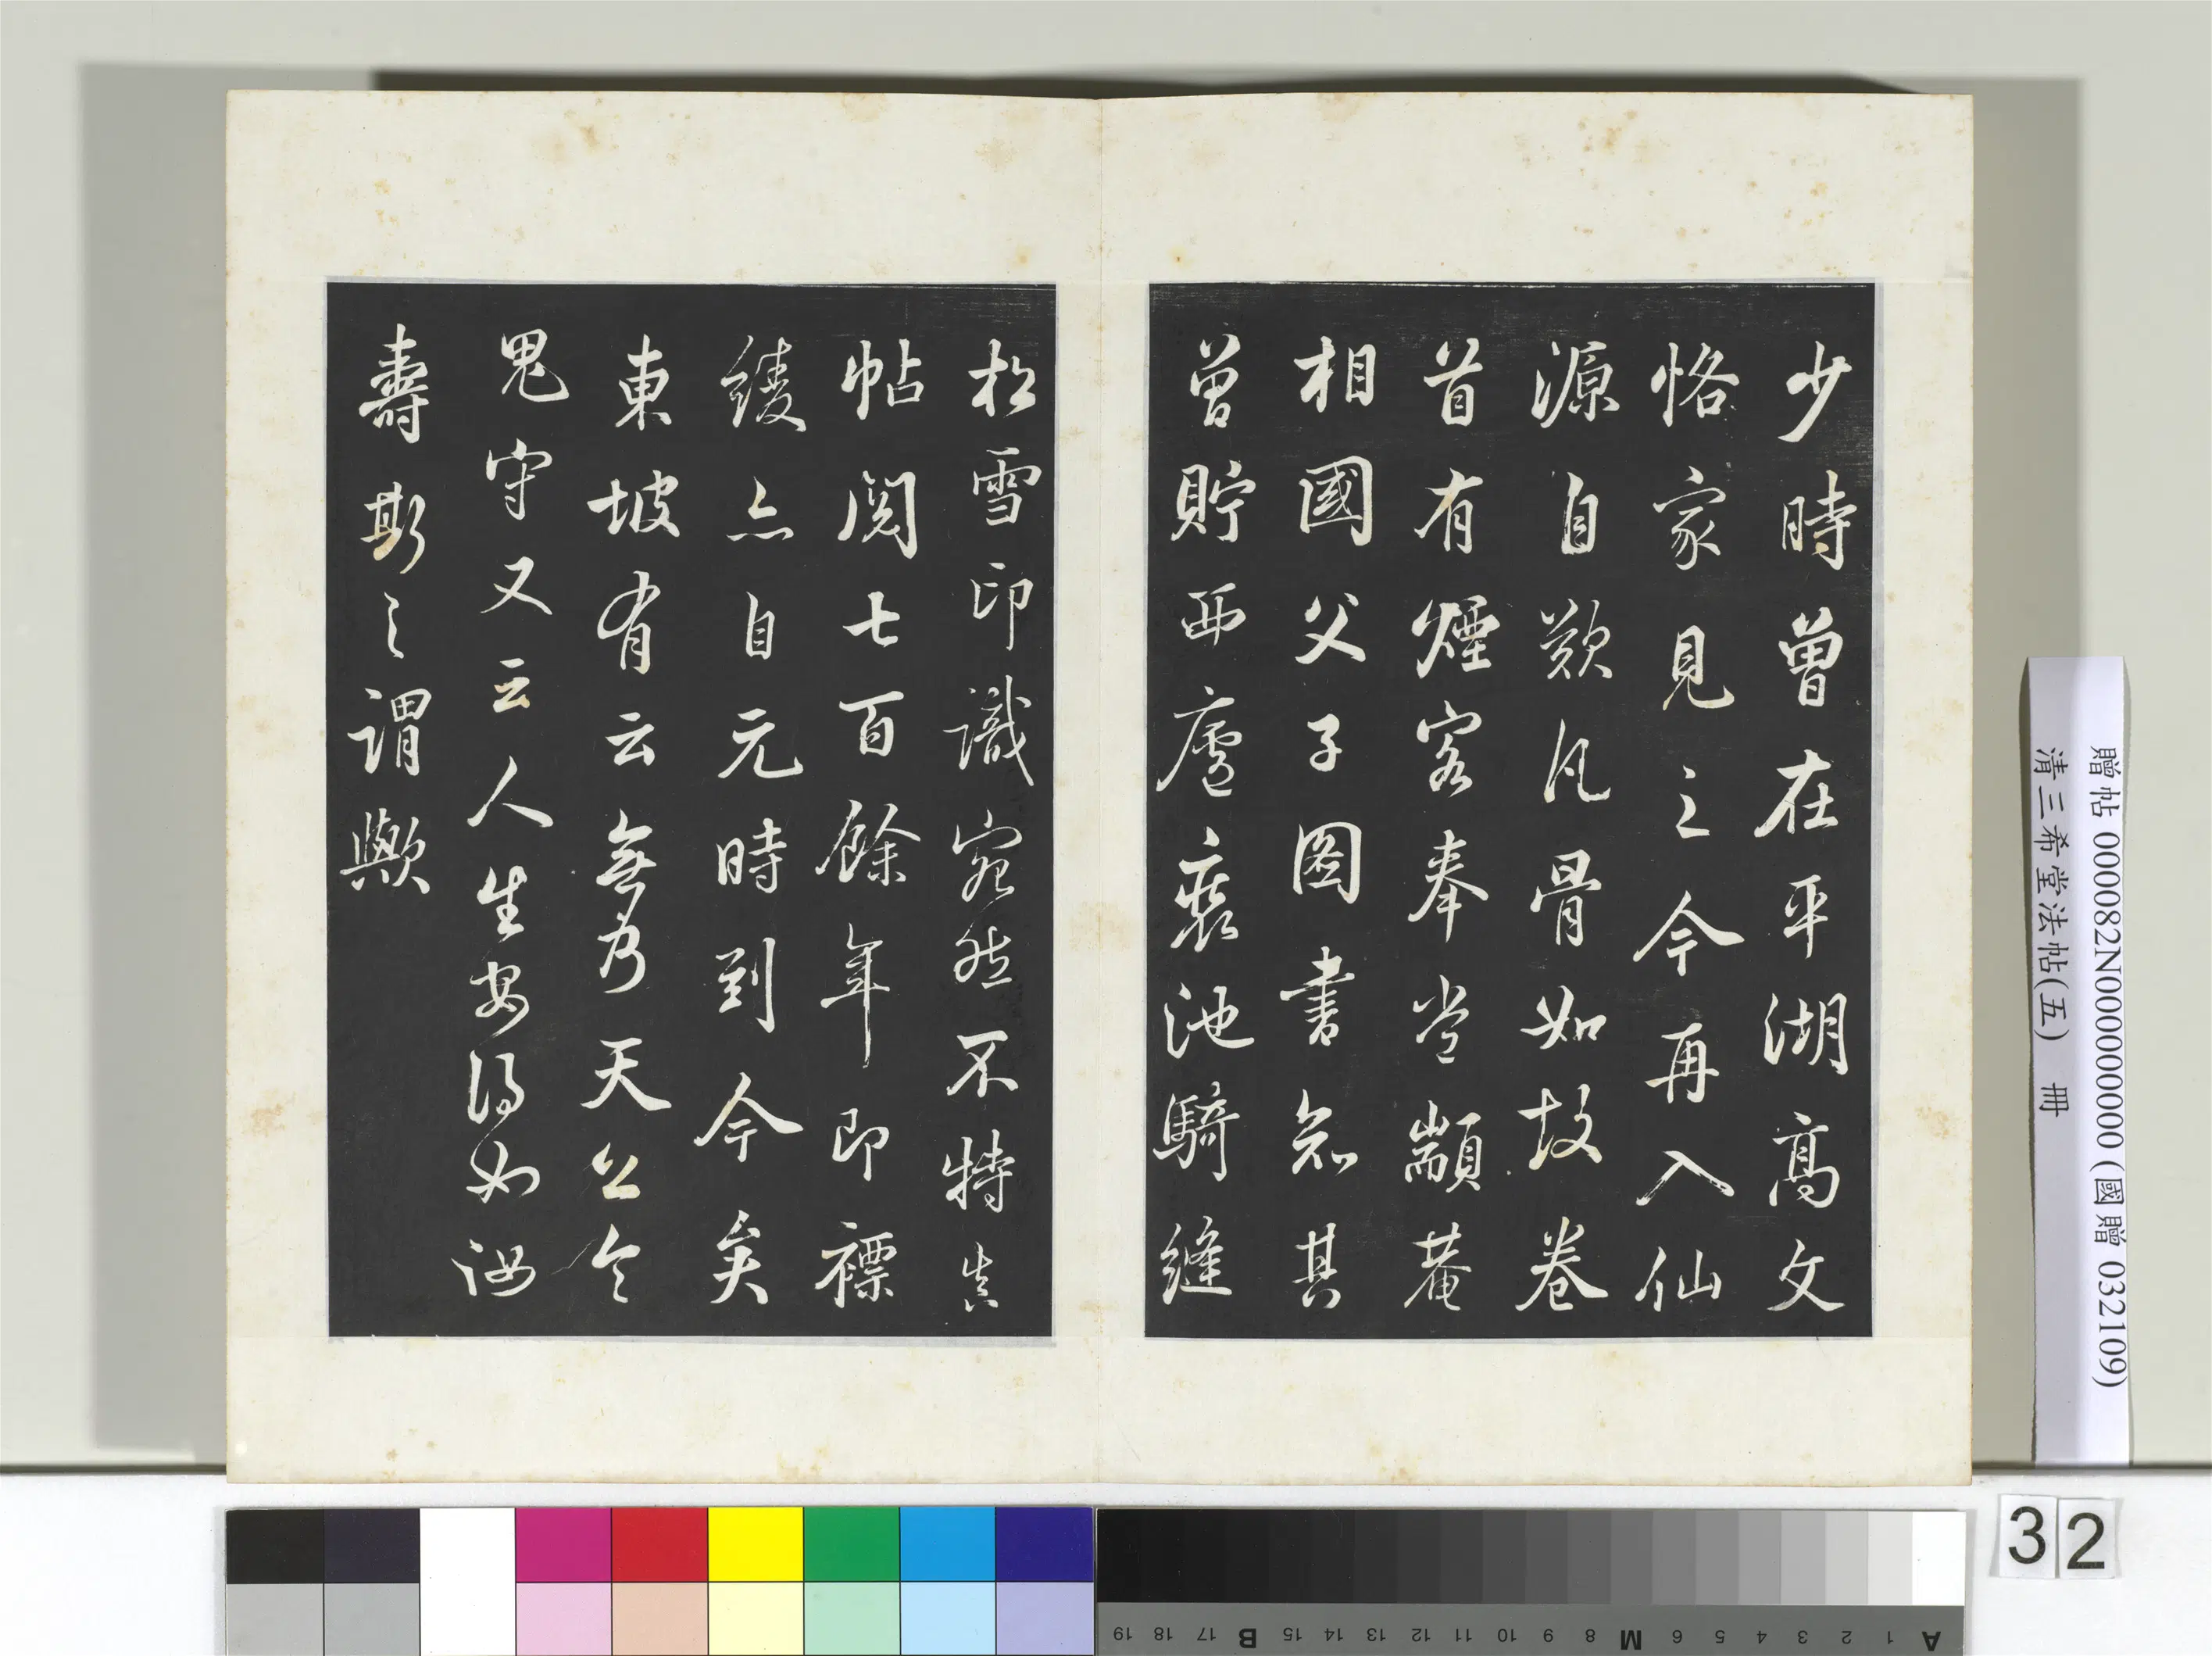 少時曾在平湖高文
恪家見之今再入仙
源自歎凡骨如故卷
首有煙客奉常顓菴
相國父子圖書知其
曾貯西廬裹池騎縫
松雪印識宛然不特真
帖閱七百餘年即褾
綾亦自元時到今矣
東坡有云無乃天公令
鬼守又云人生安得如汝
壽斯之謂歟
贈帖 000082N000000000 (國贈 032109)
清三希堂法帖(五) 冊
32
A 1 2 3 4 5 6 M 8 9 10 11 12 13 14 15 B 17 18 19